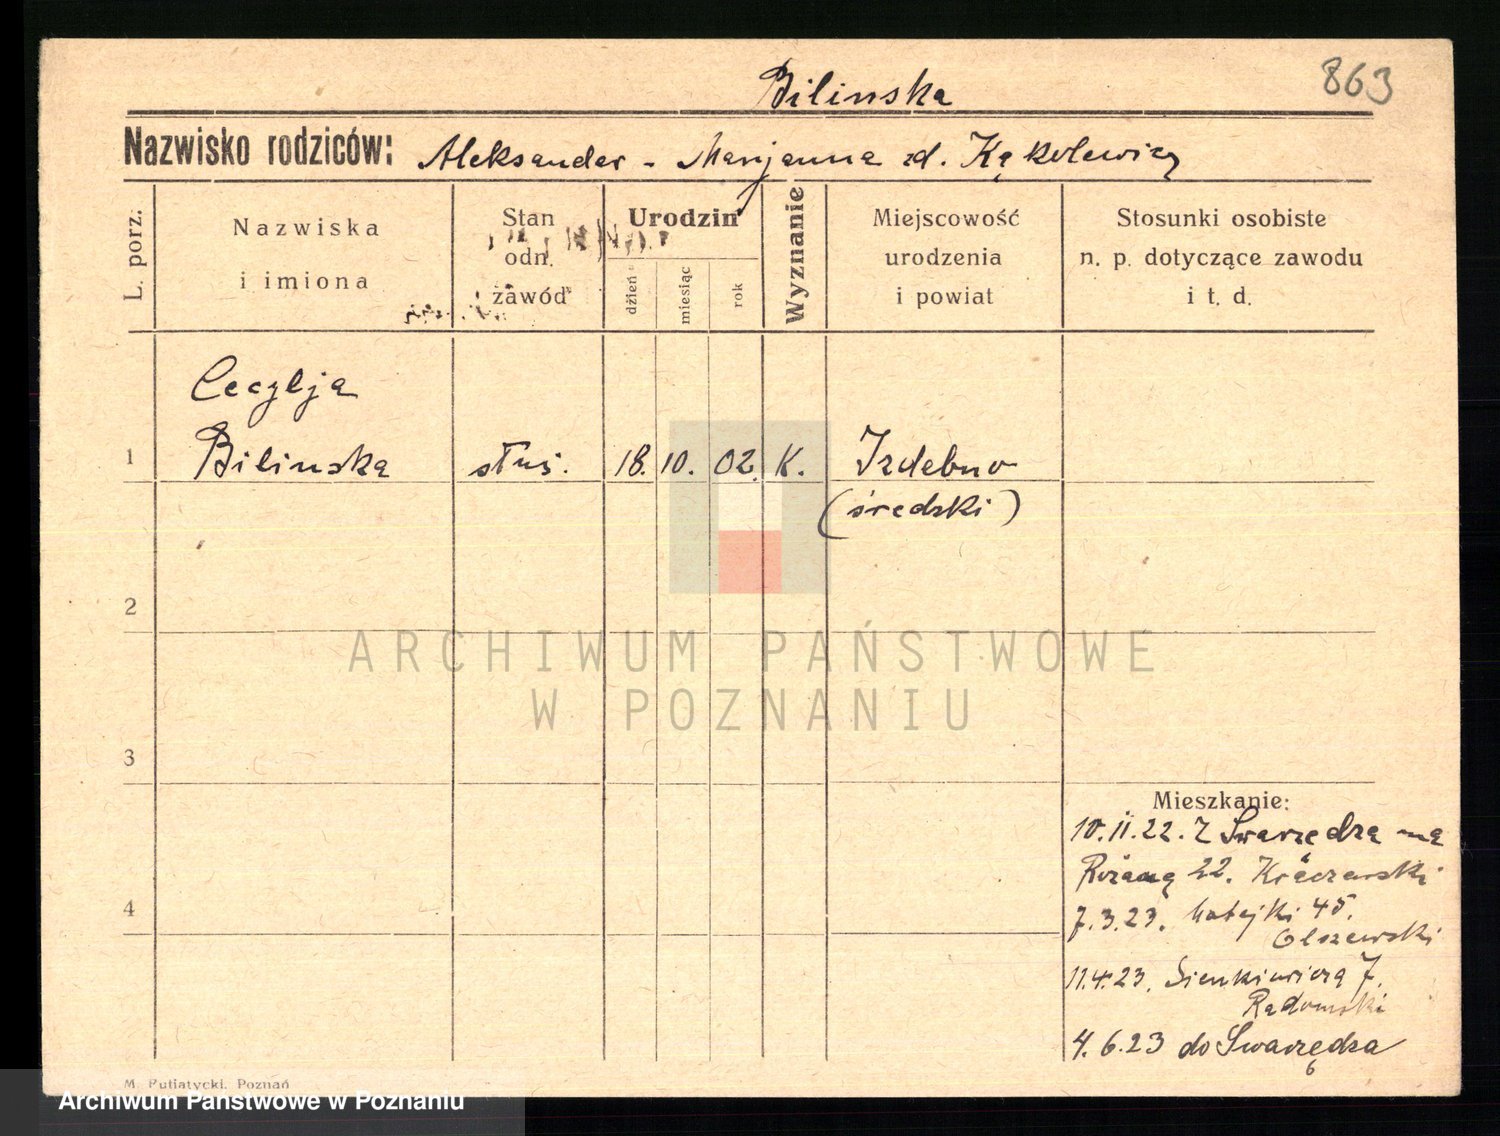 863
Bilinska
Nazwisko rodziców: Aleksander - Marjanna zd. Kąkolewicz
L. porz.
Nazwiska
i imiona
Stan
odn.
zawód
Urodzin
dzień
miesiąc
rok
Wyznanie
Miejscowość
urodzenia
i powiat
Stosunki osobiste
n. p. dotyczące zawodu
i t. d.
Cecylja
1 Bilinska służ. 18. 10. 02. K. Izdebno
(średzki)
2
3
4
Mieszkanie:
10.II.22. Z Swarzędza na
Różaną 22. Kraczewski
7.3.23. Matejki 45.
Olszewski
11.4.23. Sienkiewicza 7.
Radomski
4.6.23 do Swarzędza
6
M. Putiatycki, Poznań
ARCHIWUM PAŃSTWOWE
W POZNANIU
Archiwum Państwowe w Poznaniu